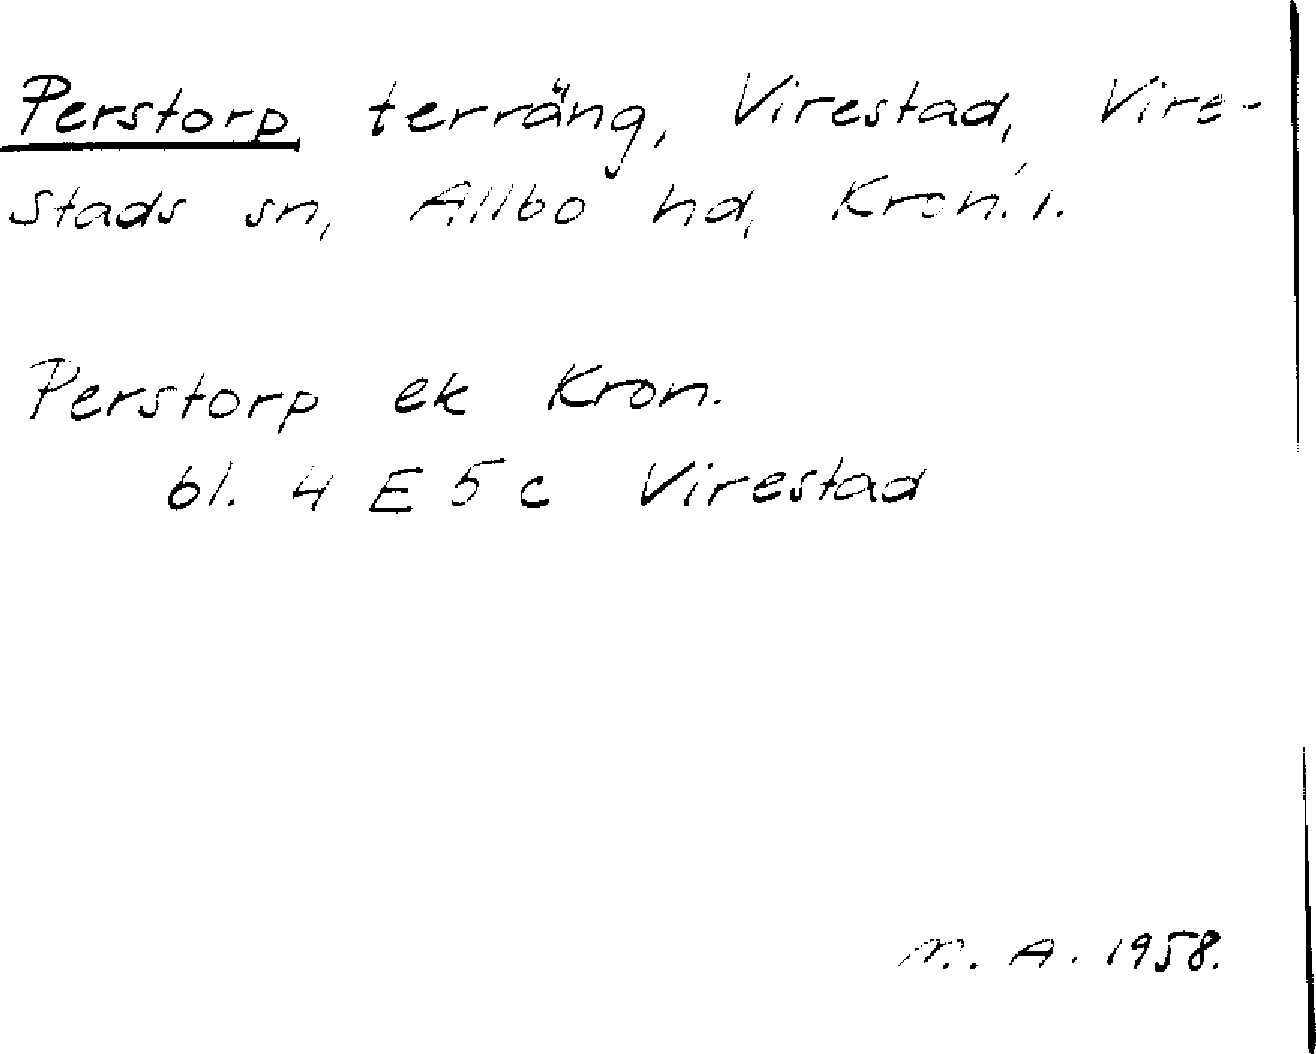 Perstorp, terräng, Virestad, Vire-
stads sn, Allbo hd, Kron. l.
Perstorp ek Kron.
bl. 4 E 5 c Virestad
M. A. 1958.